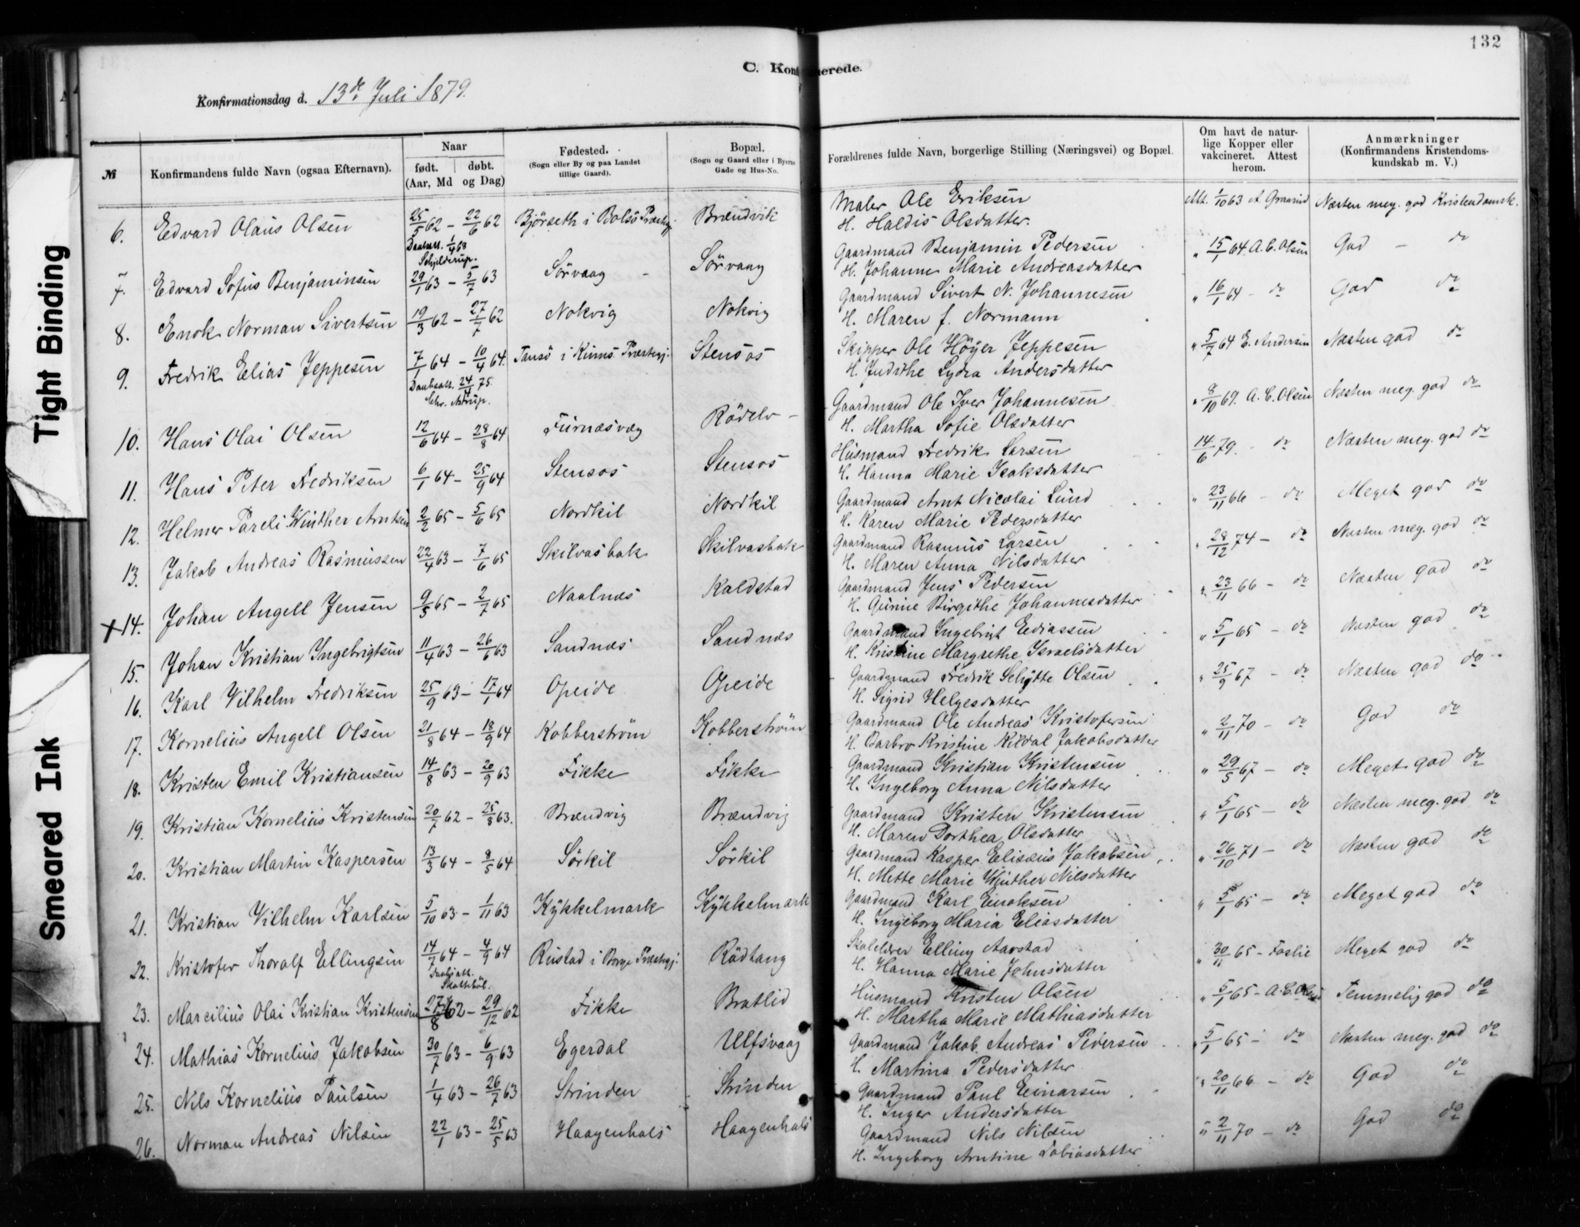 132
C. Konfirmerede.
Konfirmationsdag d. 13de Juli 1879.
№ | Konfirmandens fulde Navn (ogsaa Efternavn). | Naar født. (Aar, Md | døbt. og Dag) | Fødested. (Sogn eller By og paa Landet tillige Gaard). | Bopæl. (Sogn og Gaard eller i Byerne Gade og Hus-No. | Forældrenes fulde Navn, borgerlige Stilling (Næringsvei) og Bopæl. | Om havt de naturlige Kopper eller vakcineret. Attest herom. | Anmærkninger (Konfirmandens Kristendomskundskab m. V.)
6. Edvard Olaus Olsen 25/5 62 – 22/6 62 Bjørseth i Bolsø Præstegj. Brændvik Maler Ole Eriksen Att. 1/10 63 Næsten meg. god Kristendomsk.
Daabsatt. 1/4 63 H. Haldis Olsdatter.
Schjelderup.
7. Edvard Sofus Benjaminsen 29/1 63 – 5/7 63 Sørvaag Sørvaag Gaardmand Benjamin Pedersen " 15/1 64 A. C. Olsen God – do
H. Johanne Marie Andreasdatter
8. Enok Norman Sivertsen 19/3 62 – 27/7 62 Nokvig Nokvig Gaardmand Sivert N. Johannesen " 16/1 64 – do God do
H. Maren f. Normann
9. Fredrik Elias Jeppesen 7/1 64 – 10/4 64. Tansø i Kinns Præstegj. Stensøs Skipper Ole Høyer Jeppesen " 5/7 64 E. Andersen Næsten god do
Daabsatt. 24/4 75. H. Judithe Lydia Andersdatter
10. Hans Olai Olsen 12/6 64 – 28/8 64 Furnæsvæg Rødelv – Gaardmand Ole Iver Johannesen " 8/10 67. A. C. Olsen Næsten meg. god do
H. Martha Sofie Olsdatter
11. Hans Peter Fredriksen 6/1 64 – 25/9 64 Stensøs Stensøs Husmand Fredrik Larsen 14/6 79. – do Næsten meg. god do
H. Hanna Marie Isaksdatter
12. Helmer Pareli Winther Arntsen 2/2 65 – 5/6 65 Nordkil Nordkil Gaardmand Arnt Nicolai Lund " 23/11 66 – do Meget god do
H. Karen Marie Pedersdatter
13. Jakob Andreas Rasmussen 22/4 63 – 7/6 65 Skilvasbak Skilvasbak Gaardmand Rasmus Larsen " 28/12 74 – do Næsten meg. god do
H. Maren Anna Nilsdatter
+ 14. Johan Angell Jensen 9/3 65 – 2/7 65 Naalnæs Kaldstad Gaardmand Jens Pedersen " 23/11 66 – do Næsten god do
H. Gurine Birgithe Johannesdatter
15. Johan Kristian Ingebrigtsen 11/4 63 – 26/6 63 Sandnæs Sandnæs Gaardmand Ingebrigt Ediassen " 5/1 65 – do Næsten god do
H. Kristine Margrethe Israelsdatter
16. Karl Vilhelm Fredriksen 25/9 63 – 17/1 64 Opeide Opeide Gaardmand Fredrik Schytte Olsen " 25/9 67 – do Næsten god do
H. Sigrid Helgesdatter
17. Kornelius Angell Olsen 21/8 64 – 18/9 64 Kobberstrøm Kobberstrøm Gaardmand Ole Andreas Kristofersen " 2/11 70 – do God do
H. Barbro Kristine Rildal Jakobsdatter
18. Kristen Emil Kristiansen 14/8 63 – 20/9 63 Fikke Fikke Gaardmand Kristian Kristensen " 29/5 67 – do Meget god do
H. Ingeborg Anna Nilsdatter
19. Kristian Kornelius Kristensen 20/7 62 – 25/8 63. Brændvig Brændvig Gaardmand Kristen Kristensen " 5/1 65 – do Næsten meg. god do
H. Maren Dorthea Olsdatter
20. Kristian Martin Kaspersen 13/3 64 – 8/5 64 Sørkil Sørkil Gaardmand Kasper Elisæus Jakobsen " 26/10 71 – do Næsten god do
H. Mette Marie Winther Nilsdatter
21. Kristian Vilhelm Karlsen 5/10 63 – 1/11 63 Kykkelmark Kykkelmark Gaardmand Karl Enoksen " 5/1 65 – do Meget god do
H. Ingeborg Maria Eliasdatter
22. Kristofer Thoralf Ellingsen 14/7 64 – 4/9 64 Rustad i Borge Præstegj. Rødtang Skolelærer Elling Aarstad " 30/11 65 – Foslie Meget god do
H. Hanna Marie Johnsdatter
23. Marcilius Olai Kristian Kristensen 27/8 62 – 29/12 62 Fikke Bratlid Husmand Kristen Olsen " 5/1 65 – A. C. Olsen Temmelig god do
H. Martha Marie Mathiasdatter
24. Mathias Kornelius Jakobsen 30/7 63 – 6/9 63 Egerdal Ulfsvaag Gaardmand Jakob Andreas Pedersen " 5/1 65 – do Næsten meg. god do
H. Martina Pedersdatter
25. Nils Kornelius Paulsen 1/4 63 – 26/7 63 Strinden Strinden Gaardmand Paul Einarsen " 20/11 66 – do God do
H. Inger Andersdatter
26. Norman Andreas Nilsen 22/1 63 – 25/5 63 Haagenhals Haagenhals Gaardmand Nils Nilsen " 2/11 70 – do God do
H. Ingeborg Arntine Tobiasdatter
Tight Binding
Smeared Ink